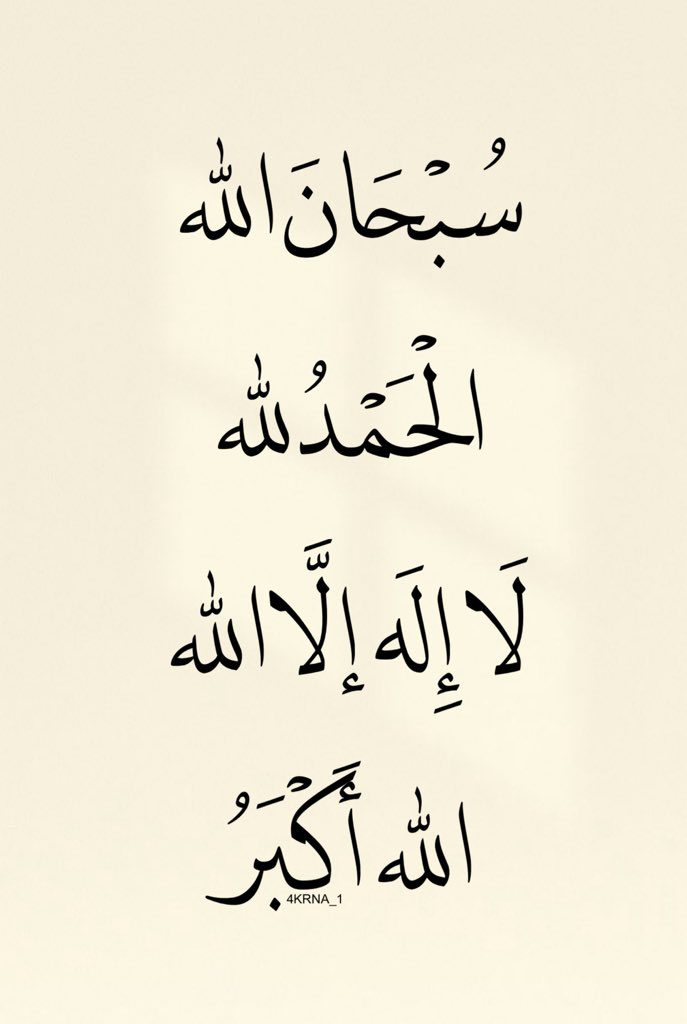 سُبْحَانَ الله
الْحَمْدُ لله
لَا إِلَهَ إلَّا الله
الله أَكْبَرُ
4KRNA_1